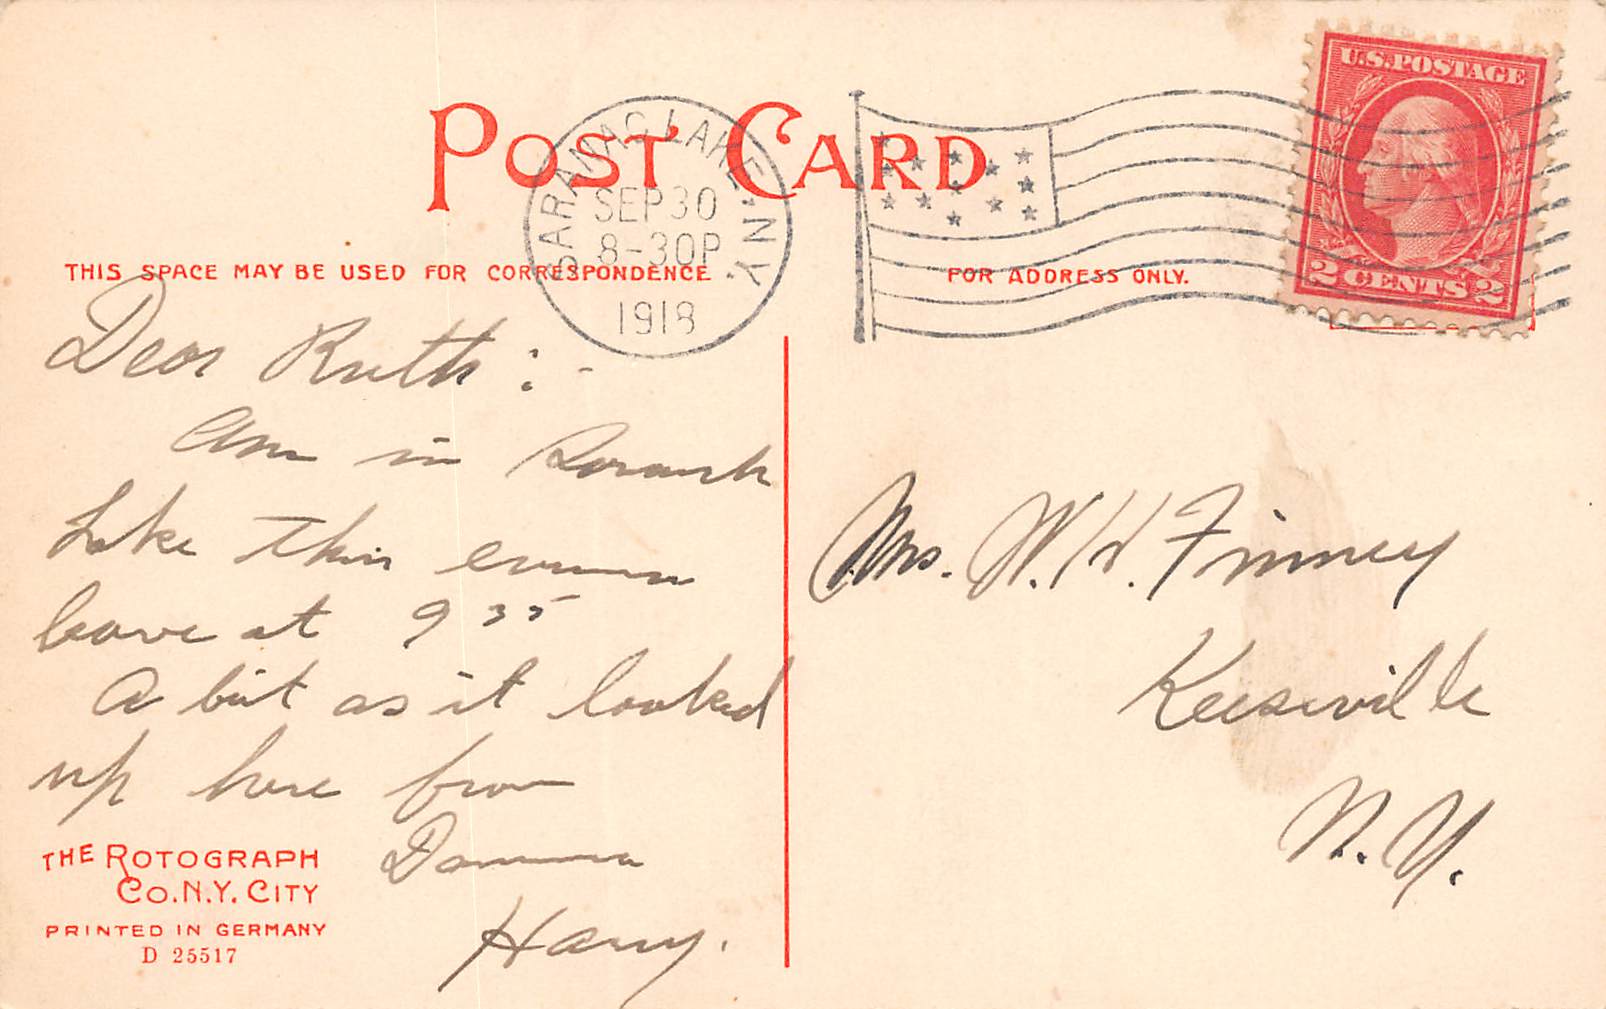 POST CARD
SARANAC LAKE N.Y.
SEP 30
8-30P
1918
U.S. POSTAGE
2 CENTS 2
THIS SPACE MAY BE USED FOR CORRESPONDENCE
FOR ADDRESS ONLY.
Dear Ruth :-
Am in Saranack
Lake this
leave at 9 35
A bit as it looked
up here from
Harry.
THE ROTOGRAPH
CO. N.Y. CITY
PRINTED IN GERMANY
D 25517
Mrs. W. H. Finney
Keeseville
N. Y.